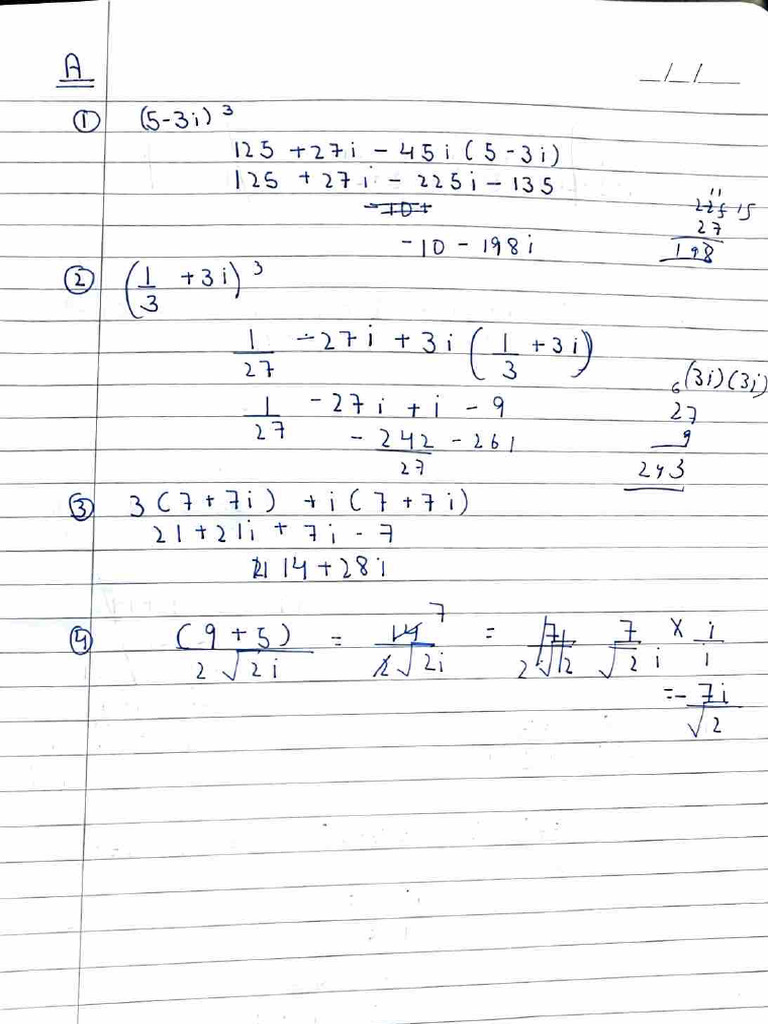 A
_/_/__
① (5-3i)³
125 + 27i - 45i (5-3i)
125 + 27i - 225i - 135
-10 - 198i
11
225 15
27
198
② (1/3 + 3i)³
1/27 - 27i + 3i (1/3 + 3i)
1/27 - 27i + i - 9
-242/27 - 26i
6 (3i)(3i)
27
9
243
③ 3(7+7i) + i(7+7i)
21 + 21i + 7i - 7
14 + 28i
④ (9+5)/2√2i = 14/2√2i = 7/√2i × i/i
7
= -7i/√2